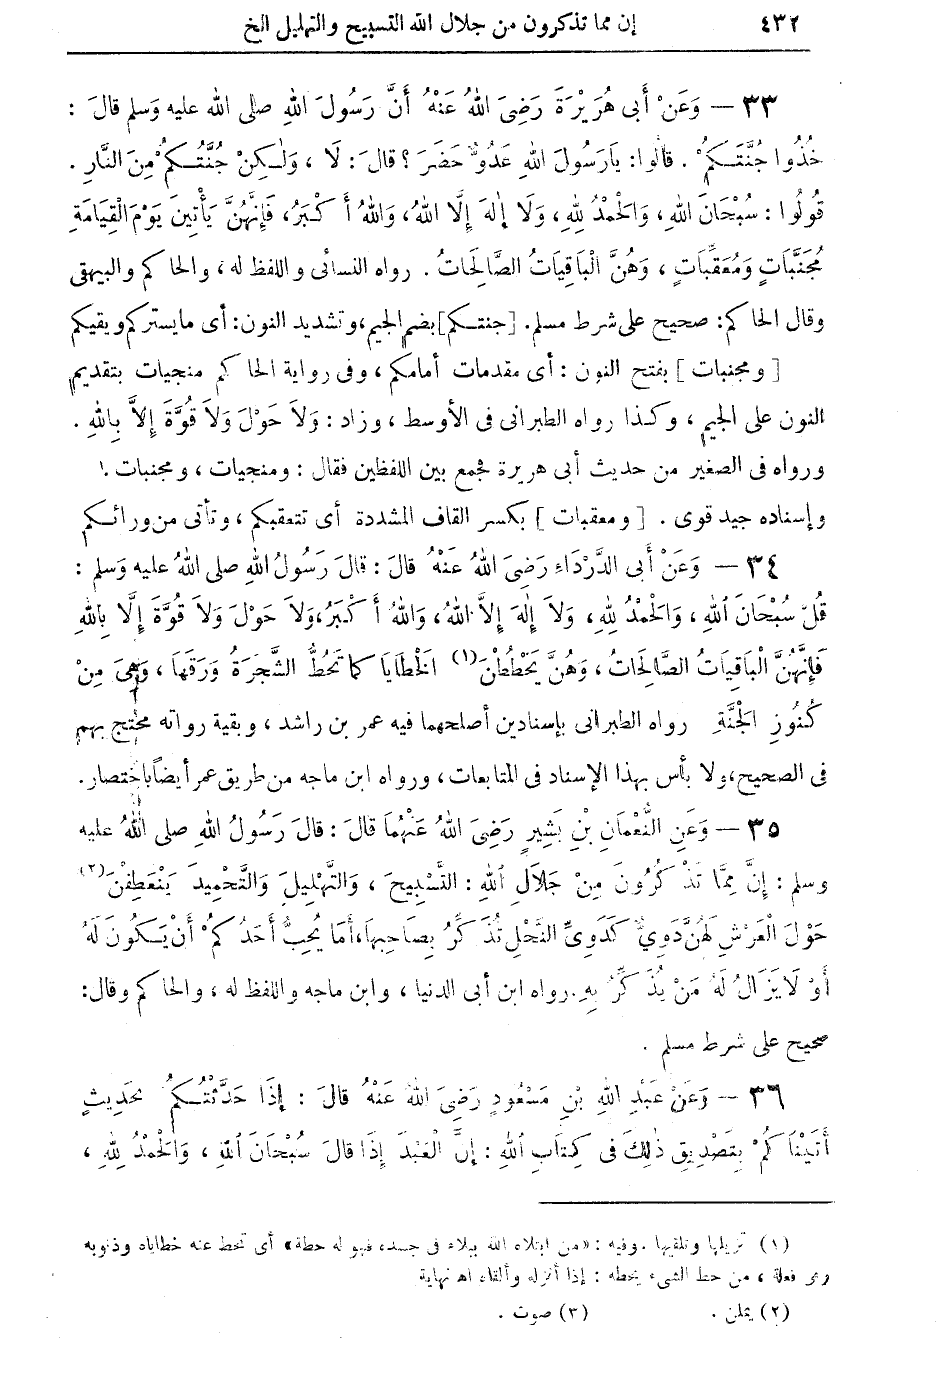 ٤٣٢ إن مما تذكرون من جلال الله التسبيح والتهليل الخ
٣٣ — وَعَنْ أَبى هُرَيْرَةَ رَضِىَ اللهُ عَنْهُ أَنَّ رَسُولَ اللهِ صلى الله عليه وَسلم قالَ :
خُذُوا جُنَّتَكُمْ . قالُوا: يَارَسُولَ اللهِ عَدُوٌّ حَضَرَ ؟ قالَ : لَا ، وَلٰكِنْ جُنَّتُكُمْ مِنَ النَّارِ .
قُولُوا : سُبْحَانَ اللهِ ، وَالْحَمْدُ لِلهِ ، وَلَا إِلٰهَ إِلَّا اللهُ ، وَاللهُ أَكْبَرُ ، فَإِنَّهُنَّ يَأْتِينَ يَوْمَ الْقِيَامَةِ
مُجَنَّبَاتٍ وَمُعَقِّبَاتٍ ، وَهُنَّ الْبَاقِيَاتُ الصَّالِحَاتُ . رواه النسائى واللفظ له ، والحاكم والبيهقى
وقال الحاكم : صحيح على شرط مسلم . [جنتكم] بضم الجيم ، وتشديد النون : أى مايستركم ويقيكم
[ومجنبات] بفتح النون : أى مقدمات أمامكم ، وفى رواية الحاكم منجيات بتقديم
النون على الجيم ، وكذا رواه الطبرانى فى الأوسط ، وزاد : وَلَا حَوْلَ وَلَا قُوَّةَ إِلاَّ بِاللهِ .
ورواه فى الصغير من حديث أبى هريرة فجمع بين اللفظين فقال : ومنجيات ، ومجنبات .
وإسناده جيد قوى . [ومعقبات] بكسر القاف المشددة أى تتعقبكم ، وتأتى من ورائكم
٣٤ — وَعَنْ أَبى الدَّرْدَاءِ رَضِىَ اللهُ عَنْهُ قالَ : قالَ رَسُولُ اللهِ صلى اللهُ عليه وَسلم :
قُلْ سُبْحَانَ اللهِ ، وَالْحَمْدُ لِلهِ ، وَلاَ إِلٰهَ إِلاَّ اللهُ ، وَاللهُ أَكْبَرُ ، وَلاَ حَوْلَ وَلاَ قُوَّةَ إِلَّا بِاللهِ
فَإِنَّهُنَّ الْبَاقِيَاتُ الصَّالِحَاتُ ، وَهُنَّ يَحْطُطْنَ (١) الْخَطَايَا كما تَحُطُّ الشَّجَرَةُ وَرَقَهَا ، وَهِىَ مِنْ
كُنُوزِ الْجَنَّةِ رواه الطبرانى بإسنادين أصلحهما فيه عمر بن راشد ، وبقية رواته محتج بهم
فى الصحيح ، ولا بأس بهذا الإسناد فى المتابعات ، ورواه ابن ماجه من طريق عمر أيضاً باختصار .
٣٥ — وَعَنِ النُّعْمَانِ بْنِ بَشِيرٍ رَضِىَ اللهُ عَنْهُمَا قالَ : قالَ رَسُولُ اللهِ صلى اللهُ عليه
وسلم : إِنَّ مِمَّا تَذْكُرُونَ مِنْ جَلَالِ اللهِ : التَّسْبِيحَ ، وَالتَّهْلِيلَ وَالتَّحْمِيدَ يَنْعَطِفْنَ (٢)
حَوْلَ الْعَرْشِ لَهُنَّ دَوِيٌّ كَدَوِيِّ النَّحْلِ تُذَكِّرُ بِصَاحِبِهَا ، أَمَا يُحِبُّ أَحَدُكُمْ أَنْ يَكُونَ لَهُ
أَوْ لَا يَزَالُ لَهُ مَنْ يُذَكِّرُ بِهِ . رواه ابن أبى الدنيا ، وابن ماجه واللفظ له ، والحاكم وقال :
صحيح على شرط مسلم .
٣٦ — وَعَنْ عَبْدِ اللهِ بْنِ مَسْعُودٍ رَضِىَ اللهُ عَنْهُ قالَ : إِذَا حَدَّثْتُكُمْ بحَدِيثٍ
أَتَيْنَاكُمْ بِتَصْدِيقِ ذٰلِكَ فى كِتَابِ اللهِ : إِنَّ الْعَبْدَ إِذَا قالَ سُبْحَانَ اللهِ ، وَالْحَمْدُ لِلهِ ،
(١) تزيلها وتلقيها . وفيه : «من ابتلاه الله ببلاء فى جسده فهو له حطة» أى تحط عنه خطاياه وذنوبه
وهى فعلة ، من حط الشىء يحطه : إذا أنزله وألقاه اهـ نهاية
(٢) يملن . (٣) صوت .